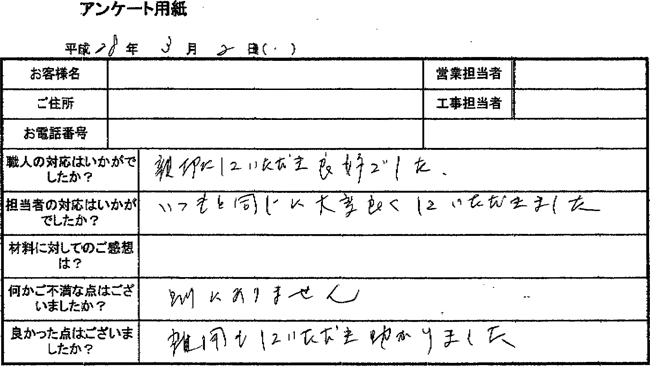 アンケート用紙
平成28年 3月 2日( . )
お客様名
営業担当者
ご住所
工事担当者
お電話番号
職人の対応はいかがで
したか？
親切にしていただき良好でした.
担当者の対応はいかが
でしたか？
いつもと同じに大変良くしていただきました
材料に対してのご感想
は？
何かご不満な点はござ
いましたか？
別にありません
良かった点はございま
したか？
雑用もしていただき助かりました